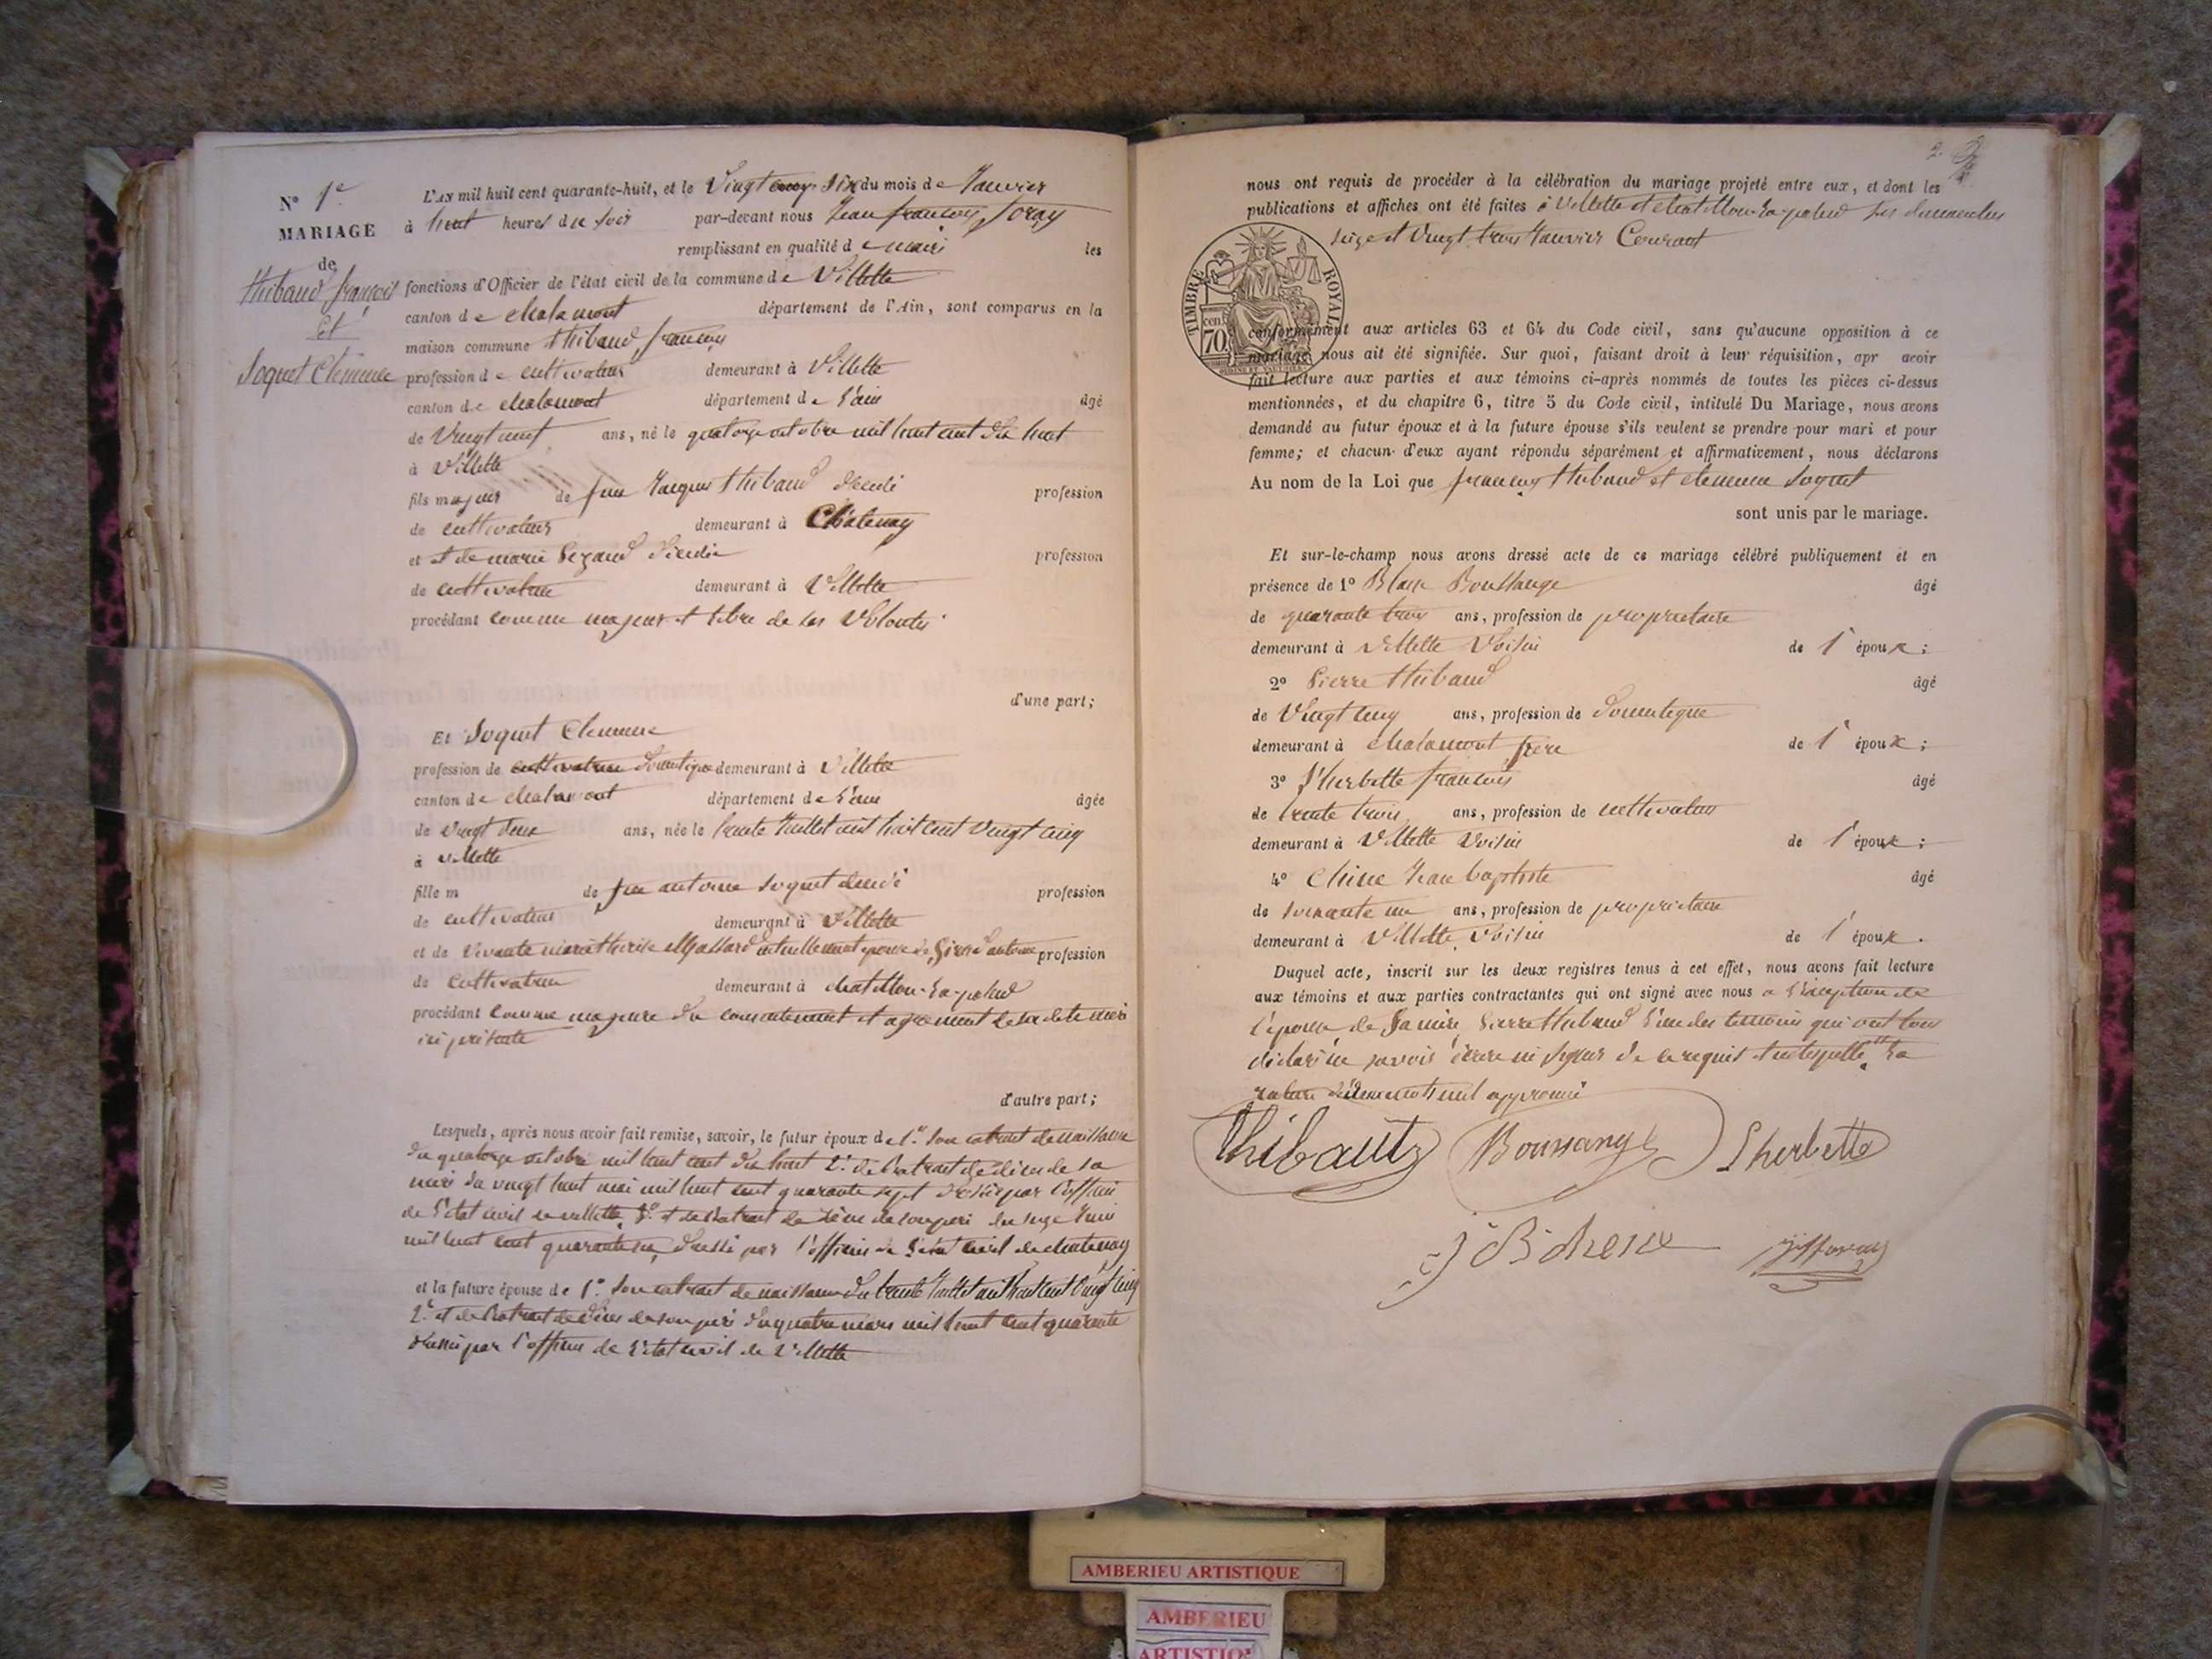 N° 1er
MARIAGE
de
Thibaud françois
Et
Soquet Clemence
L'AN mil huit cent quarante-huit, et le Vingt cinq Six du mois de Janvier
à huit heures du soir par-devant nous Jean françois Joray
remplissant en qualité de maire les
fonctions d'Officier de l'état civil de la commune de Villette
canton de chalamont département de l'Ain, sont comparus en la
maison commune Thibaud françois
profession de cultivateur demeurant à Villette
canton de chalamont département de l'ain âgé
de Vingt neuf ans, né le quatorze octobre mil huit cent dix huit
à Villette
fils majeur de feu Jacques Thibaud décédé profession
de cultivateur demeurant à Châtenay
et et de marie décédée profession
de cultivatrice demeurant à Villette
procédant comme majeur et libre de ses Volontés
d'une part;
Et Soquet Clemence
profession de cultivatrice Domestique demeurant à Villette
canton de chalamont département de l'ain âgée
de vingt deux ans, née le trente Juillet mil huit cent vingt cinq
à villette
fille m de feu antoine Soquet décédé profession
de cultivateur demeurant à Villette
et de vivante marie therise Massard actuellement epouse de antoine profession
de cultivatrice demeurant à chatillon-la-palud
procédant comme majeure du consentement et agrement de sa dite mère
ici présente
d'autre part;
Lesquels, après nous avoir fait remise, savoir, le futur époux de 1° son extrait de naissance
du quatorze octobre mil huit cent dix huit 2° de l'extrait de décès de sa
mère du vingt huit mai mil huit cent quarante sept dressé par l'officier
de l'etat civil de villette 3° et de l'extrait de décès de son père du seize Juin
mil huit cent quarante dressé par l'officier de l'etat civil de chatenay
et la future épouse de 1° son extrait de naissance du trente Juillet mil huit cent vingt cinq
2° et de l'extrait de décès de son père du quatre mars mil huit cent quarante
dressé par l'officier de l'etat civil de Villette
2
nous ont requis de procéder à la célébration du mariage projeté entre eux, et dont les
publications et affiches ont été faites à Villette et chatillon-la-palud les dimanches
seize et vingt trois Janvier Courant
TIMBRE ROYAL
70 cen.
conformément aux articles 63 et 64 du Code civil, sans qu'aucune opposition à ce
mariage nous ait été signifiée. Sur quoi, faisant droit à leur réquisition, apr avoir
fait lecture aux parties et aux témoins ci-après nommés de toutes les pièces ci-dessus
mentionnées, et du chapitre 6, titre 5 du Code civil, intitulé Du Mariage, nous avons
demandé au futur époux et à la future épouse s'ils veulent se prendre pour mari et pour
femme; et chacun d'eux ayant répondu séparément et affirmativement, nous déclarons
Au nom de la Loi que françois Thibaud et clemence Soquet
sont unis par le mariage.
Et sur-le-champ nous avons dressé acte de ce mariage célébré publiquement et en
présence de 1° Blaise âgé
de quarante trois ans, profession de propriétaire
demeurant à Villette Voisin de l'époux;
2° Pierre Thibaud âgé
de Vingt cinq ans, profession de Domestique
demeurant à chalamont frère de l'époux;
3° l'herbette françois âgé
de trente trois ans, profession de cultivateur
demeurant à Villette Voisin de l'époux;
4° Chêne Jean baptiste âgé
de soixante un ans, profession de propriétaire
demeurant à Villette Voisin de l'époux.
Duquel acte, inscrit sur les deux registres tenus à cet effet, nous avons fait lecture
aux témoins et aux parties contractantes qui ont signé avec nous a l'exception de
l'épouse de sa mère, Pierre Thibaud l'un des témoins qui ont tous
déclaré ne savoir écrire ni signer de ce requis et interpellés la
rature de deux mots nul approuvé
Thibaut Boussange Lherbette
J B chene jf Joray
AMBERIEU ARTISTIQUE
AMBERIEU
ARTISTIQ